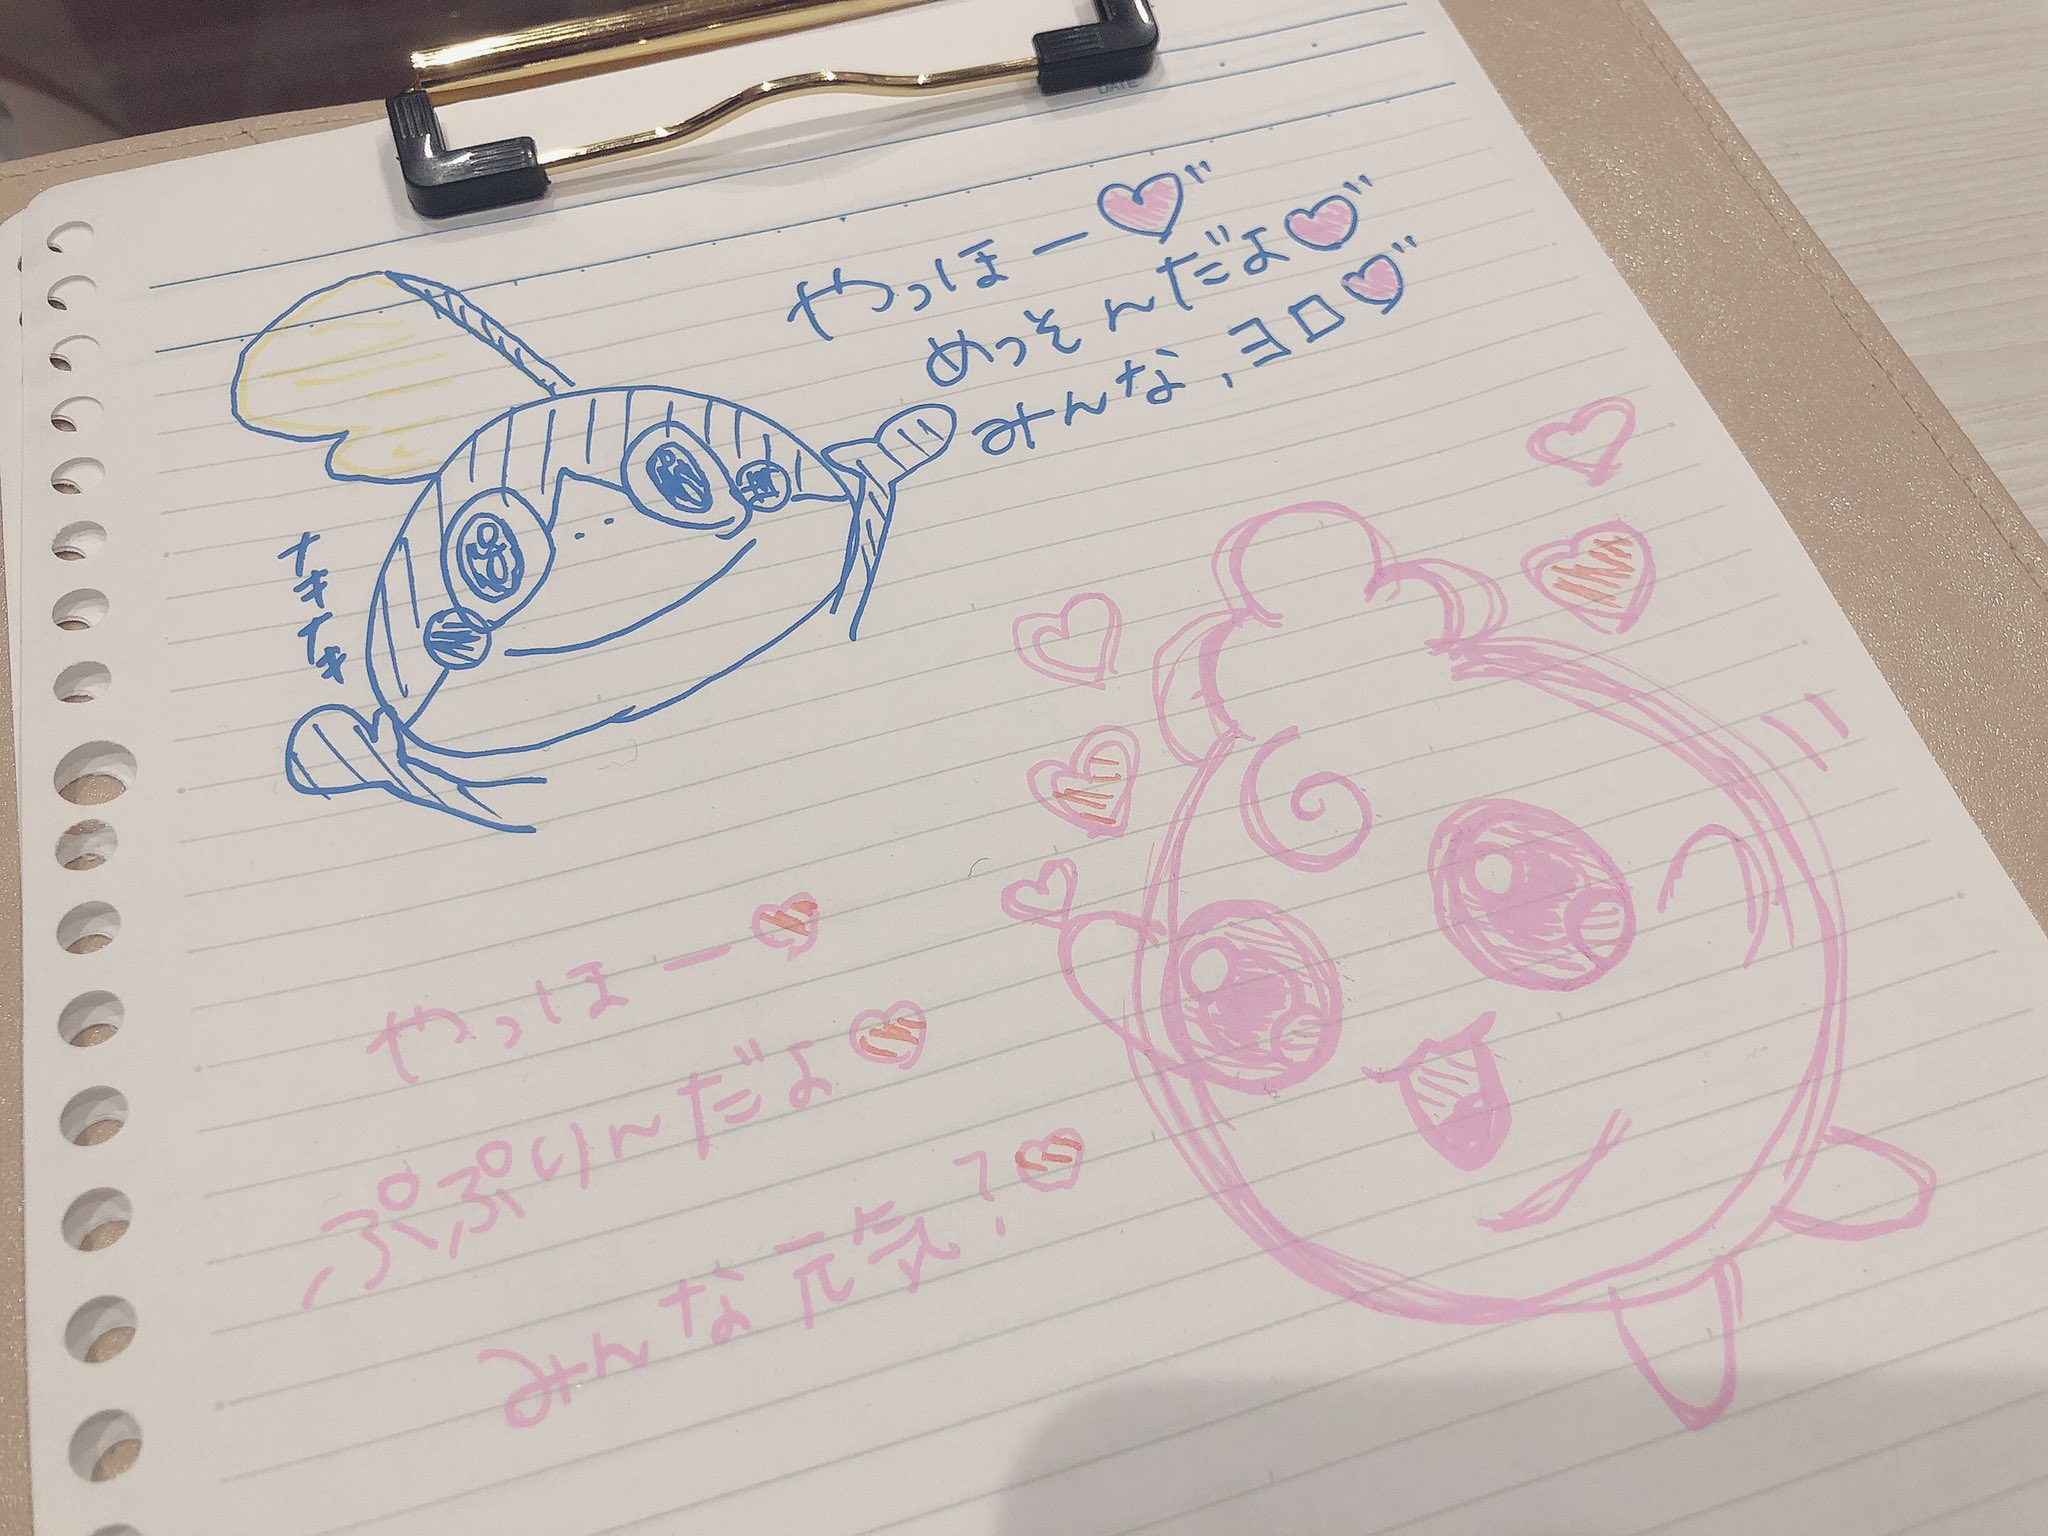 DATE
やっほー
めっそんだよ
みんな,ヨロ
ナキナキ
やっほー
ぷぷりんだよ
みんな元気?